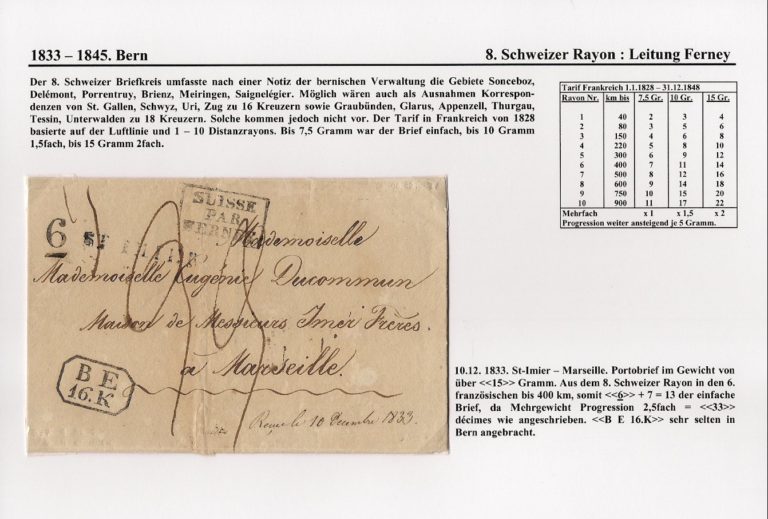 1833 – 1845. Bern
8. Schweizer Rayon : Leitung Ferney
Der 8. Schweizer Briefkreis umfasste nach einer Notiz der bernischen Verwaltung die Gebiete Sonceboz,
Delémont, Porrentruy, Brienz, Meiringen, Saignelégier. Möglich wären auch als Ausnahmen Korrespon-
denzen von St. Gallen, Schwyz, Uri, Zug zu 16 Kreuzern sowie Graubünden, Glarus, Appenzell, Thurgau,
Tessin, Unterwalden zu 18 Kreuzern. Solche kommen jedoch nicht vor. Der Tarif in Frankreich von 1828
basierte auf der Luftlinie und 1 – 10 Distanzrayons. Bis 7,5 Gramm war der Brief einfach, bis 10 Gramm
1,5fach, bis 15 Gramm 2fach.
Tarif Frankreich 1.1.1828 – 31.12.1848
Rayon Nr. km bis 7,5 Gr. 10 Gr. 15 Gr.
1 40 2 3 4
2 80 3 5 6
3 150 4 6 8
4 220 5 8 10
5 300 6 9 12
6 400 7 11 14
7 500 8 12 16
8 600 9 14 18
9 750 10 15 20
10 900 11 17 22
Mehrfach x 1 x 1,5 x 2
Progression weiter ansteigend je 5 Gramm.
SUISSE
PAR
FERNEY
6
ST IMIER
Mademoiselle
Mademoiselle Eugénie Ducommun
Maison de Messieurs Imér Frères.
à Marseille.
B E
16.K
10 Decembre 1833.
10.12. 1833. St-Imier – Marseille. Portobrief im Gewicht von
über <<15>> Gramm. Aus dem 8. Schweizer Rayon in den 6.
französischen bis 400 km, somit <<6>> + 7 = 13 der einfache
Brief, da Mehrgewicht Progression 2,5fach = <<33>>
décimes wie angeschrieben. <<B E 16.K>> sehr selten in
Bern angebracht.